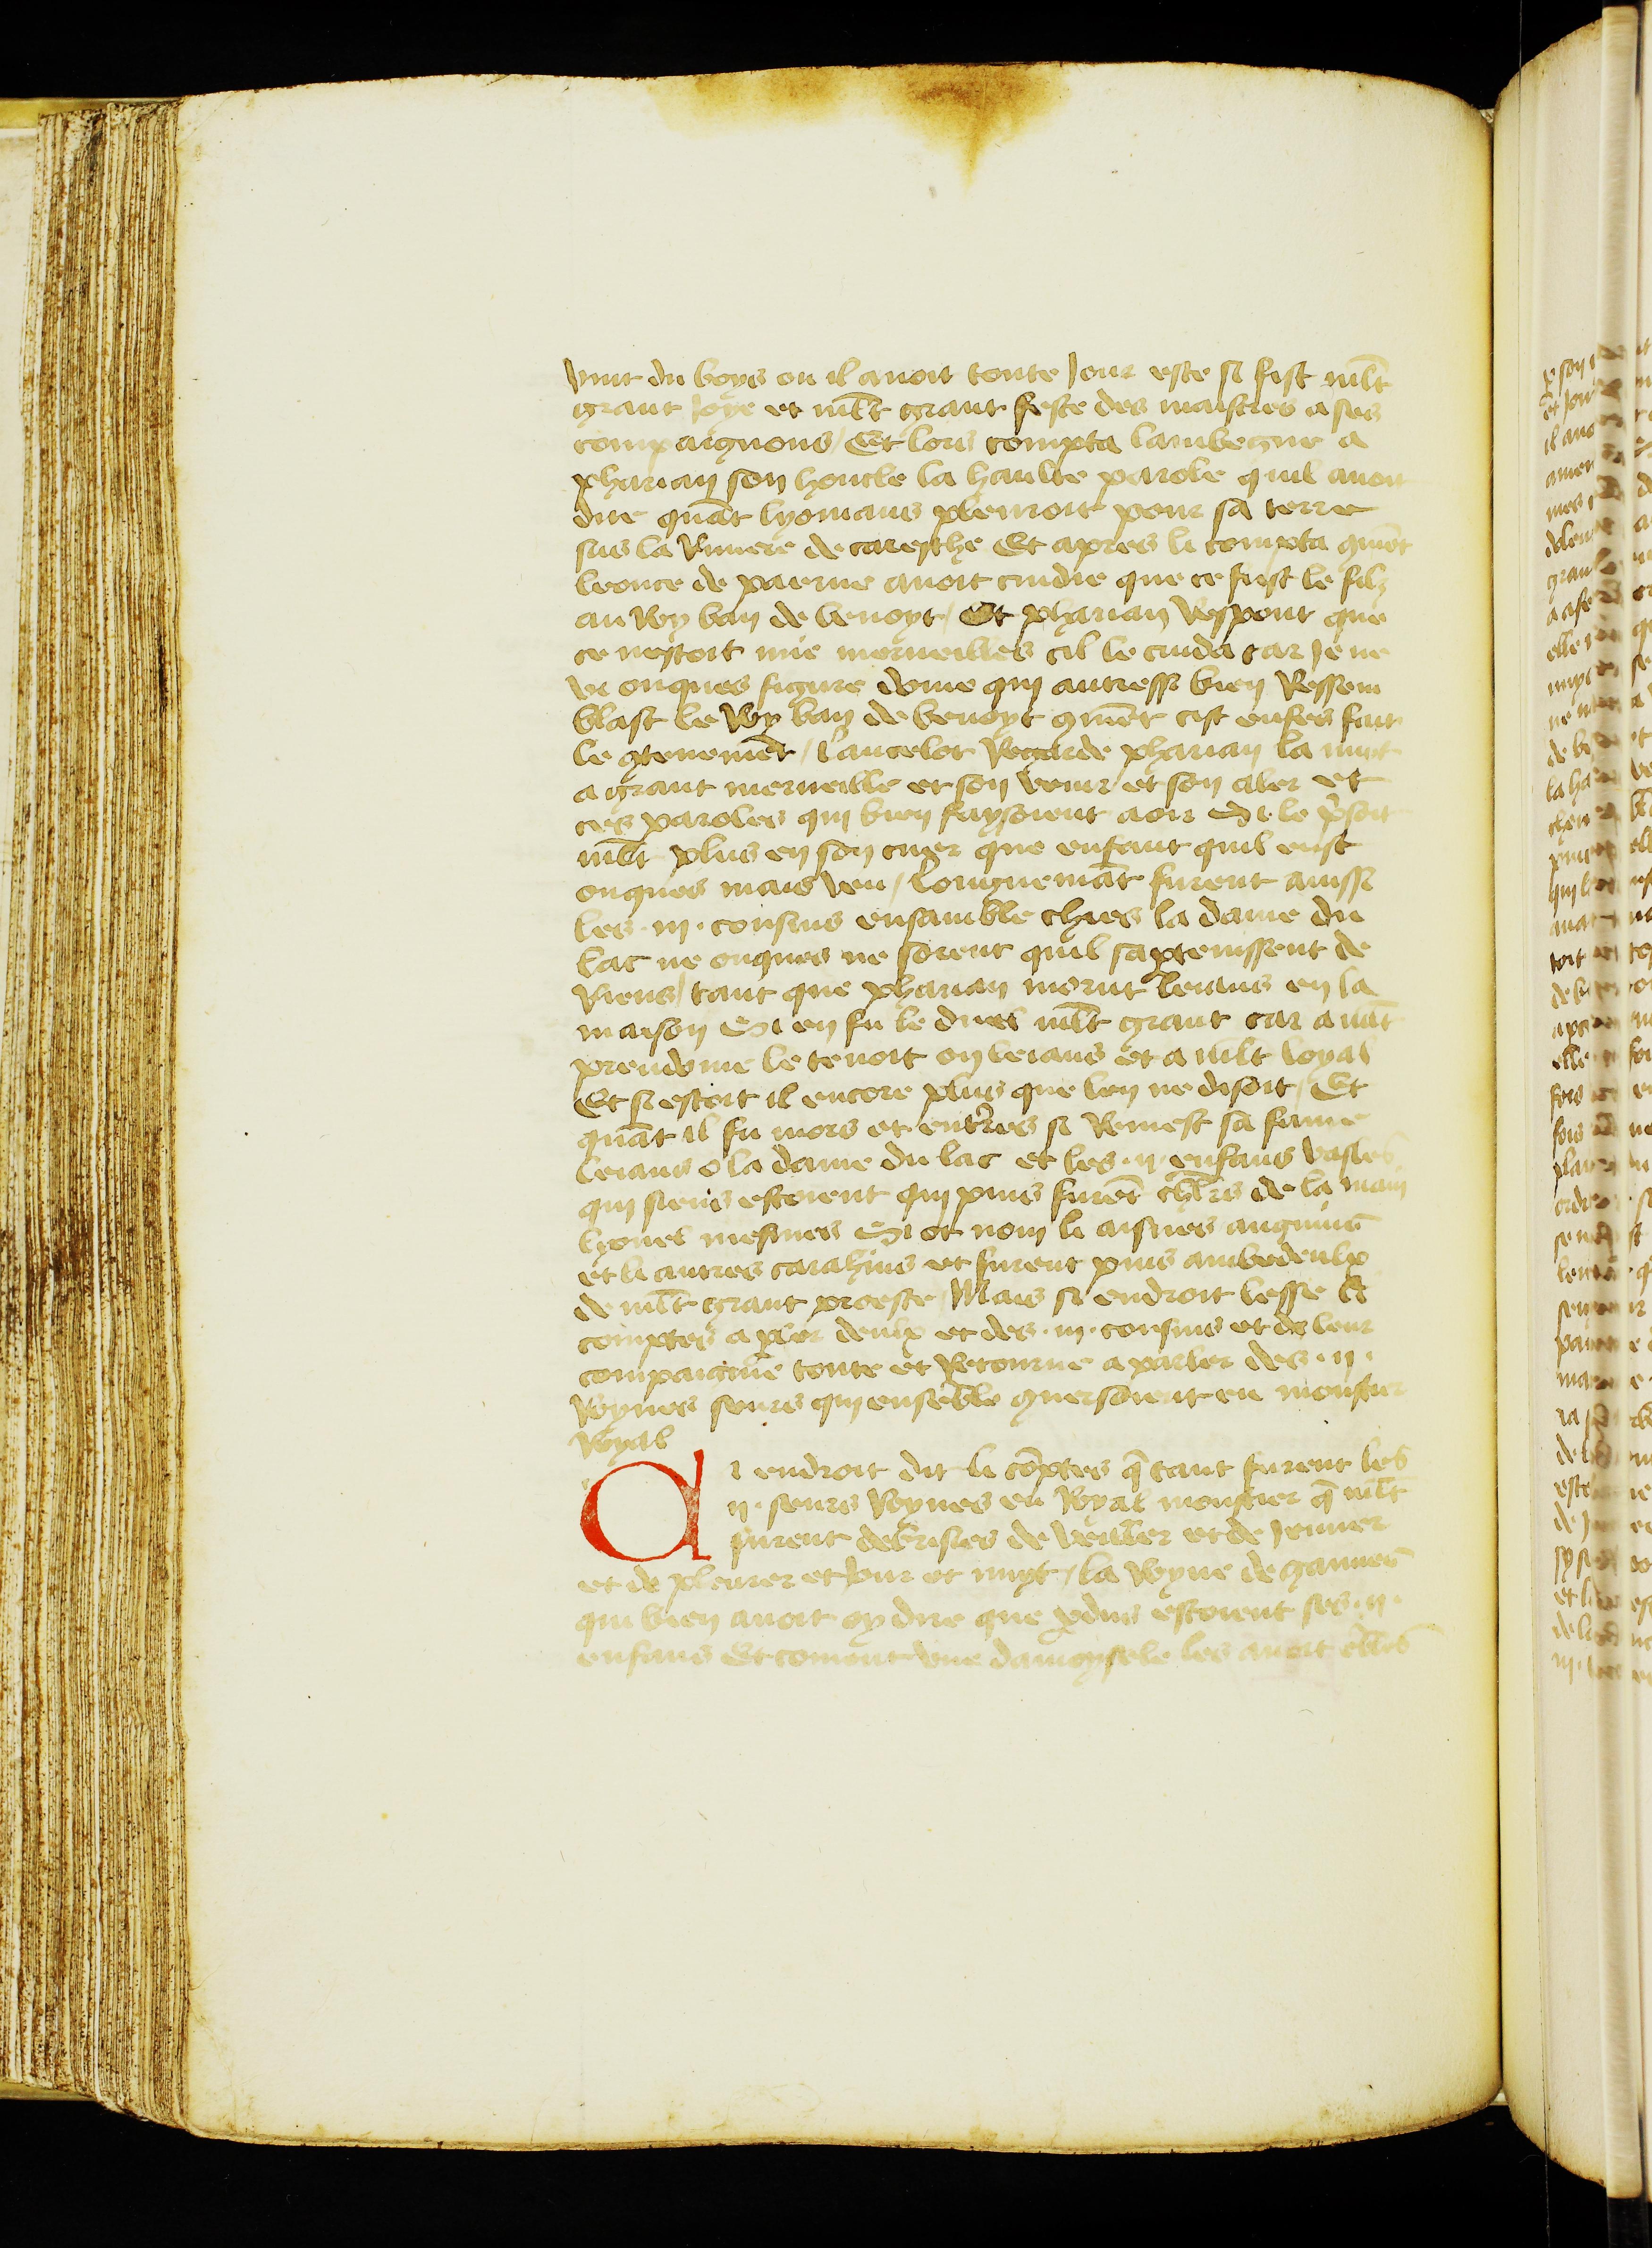 vint du boys ou il auoit toute Jour este si fist ml̄t
grant Joye et ml̄t grant feste des maistres a ses
compaignons / Et lors compta lambegue a
pharian son honcle la haulte parole quil auoit
dite quāt lyoniaus plenroit pour sa terre
sus la Riuiere de careythe Et apres li compta 9mēt
leonce de paerne auoit cuidie que ce fust le filz
au Roy ban de benoyt / Et pharian Respont que
ce nestoit mie merueilles cil le cuida car Je ne
vi onques figure dome qui autressi bien Ressem
blast le Roy ban de benoyt 9mēt cist enfes fait
le 9tenemēt / Lancelot Regarde pharian la nuit
a grant merueille et son venir et son aler et
ces paroles qui bien faysoient a oir Si le p̄soit
ml̄t plus en son cuer que enfant quil eust
onques mais veu / Longuemāt furent ainssi
les .iii. cousins ensamble chies la dame du
lac ne onques ne sorent quil sap̱tenissent de
Riens / tant que pharian morut leians en la
maison Si en fu le duel ml̄t grant car a uāt
preudome le tenoit on leians et a mlt loyal
Et si estoit il encore plus que len ne disoit / Et
quāt il fu mors et entr̄es si Remest sa fame
leians o la dame du lac et les .ii. enfans vasles
qui siens estoient qui puis furēt chl̄rs de la main
lyonel mesmes Si ot nom li aisnes anguinē
et li autres tarahins et furent puis ambedeulx
de ml̄t grant proeste / Mais si endroit lesse li
comptes a p̱ler deulx et des .iii. cousins et de leur
compaignie toute et Retourne a parler des .ii.
Roynes seurs qui ensēble 9uersoient en moustier
Royal
A i endroit dit li cōptes q̄ tant furent les
.ii. seurs Roynes en Royal moustier q̄ ml̄t
furent debrisies de veill̄er et de Jeuner
et de pleurer et Jour et nuyt / la Royne de gaunes
qui bien auoit oy dire que p̱dus estoient ses .ii.
enfans Et coment vne damoysele les auoit